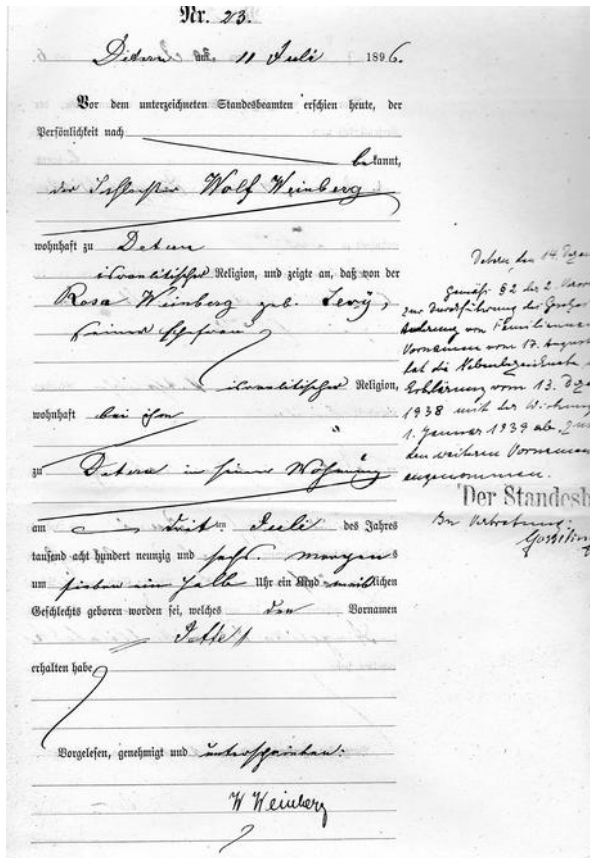 Nr. 23.
Detern am 11 Juli 1896.
Vor dem unterzeichneten Standesbeamten erschien heute, der
Persönlichkeit nach
bekannt,
der Schlachter Wolf Weinberg
wohnhaft zu Detern
israelitischer Religion, und zeigte an, daß von der
Rosa Weinberg geb. Levy,
seiner Ehefrau
israelitischer Religion,
wohnhaft bei ihm
zu Detern in seiner Wohnung
am dritten Juli des Jahres
tausend acht hundert neunzig und sechs morgens
um sieben ein halb Uhr ein Kind weiblichen
Geschlechts geboren worden sei, welches den Vornamen
erhalten habe
Vorgelesen, genehmigt und unterschrieben:
W Weinberg
Detern, den 14. Deze
Gemäß § 2 der 2. Veror
zur Durchführung des Gesetzes
Änderung von Familienna
Vornamen vom 17. August
hat die Nebenbezeichnete
Erklärung vom 13. Deze
1938 mit der Wirkung
1. Januar 1939 ab, zu
den weiteren Vornamen
angenommen.
Der Standesb
In Vertretung: